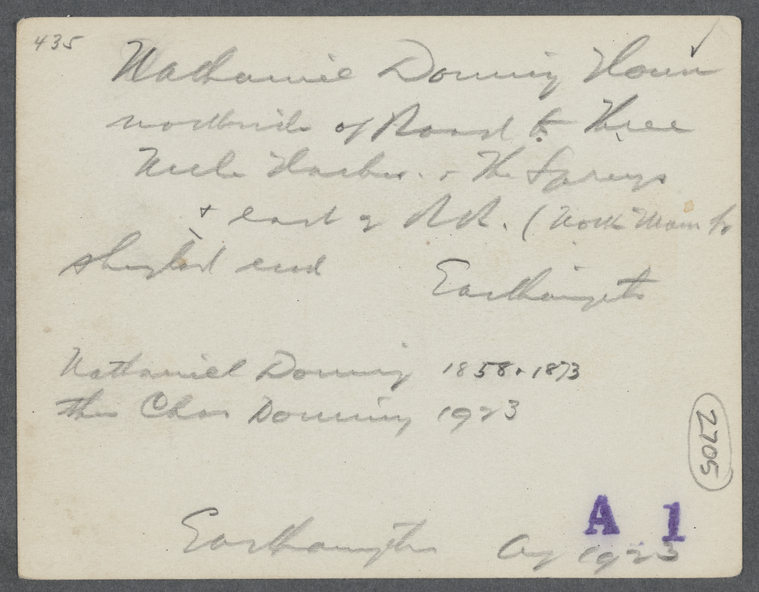 435
Nathaniel Dominy House
northside of Road to Three
Mile Harbor + The Springs
+ east of R.R. (North Main St
shingled end
Easthampton
Nathaniel Dominy 1858 + 1873
then Chas Dominy 1923
2705
A 1
Easthampton Aug 1923